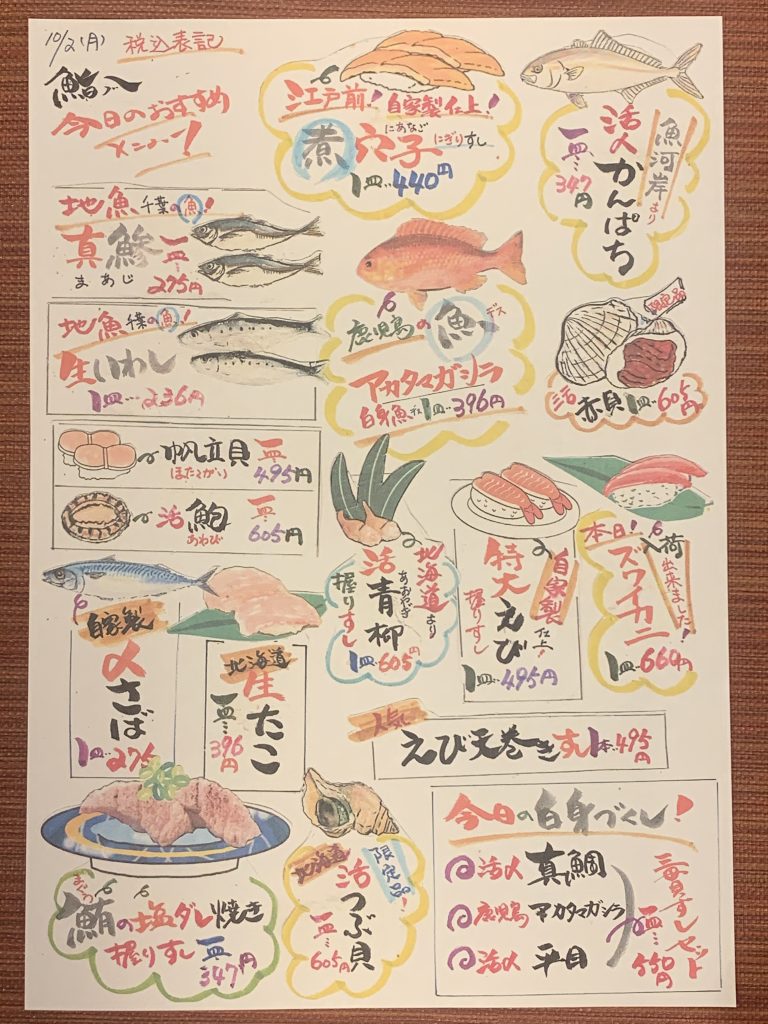 10/2(月) 税込表記
鮨八
今日のおすすめ
メニュー!
江戸前! 自家製仕上!
煮穴子にぎりすし
にあなご
1皿…440円
魚河岸より
活〆かんぱち
一皿…347円
地魚 千葉の魚!
真鯵
まあじ
一皿 275円
地魚 千葉の魚!
生いわし
1皿…236円
鹿児島の魚デス
アカタマガシラ
白身魚デス 1皿…396円
限定品
活赤貝 1皿…605円
帆立貝
ほたてがい
一皿 495円
活鮑
あわび
一皿 605円
北海道より
活青柳
あおやぎ
握りすし
1皿…605円
自家製仕上!
特大えび
握りすし
1皿…495円
本日! 入荷出来ました!
ズワイカニ
1皿…660円
自家製
〆さば
1皿…275
北海道
生たこ
一皿…396円
人気
えび天巻きすし 1本…495円
まぐろ
鮪の塩ダレ焼き
握りすし 一皿…347円
北海道
限定品!
活つぶ貝
一皿…605円
今日の白身づくし!
活〆 真鯛
鹿児島 アカタマガシラ
活〆 平目
三貫すしセット
一皿…550円